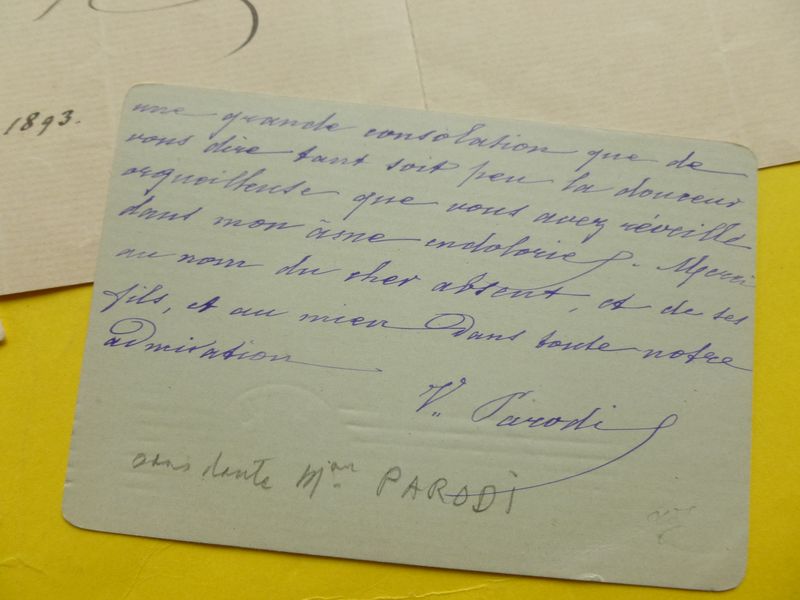 1893.
une grande consolation que de
vous dire tant soit peu la douceur
orgueilleuse que vous avez réveillé
dans mon âme endolorie. Merci
au nom du cher absent, et de ses
fils, et au mien dans toute notre
admiration
V. Parodi
sans doute Mme PARODI